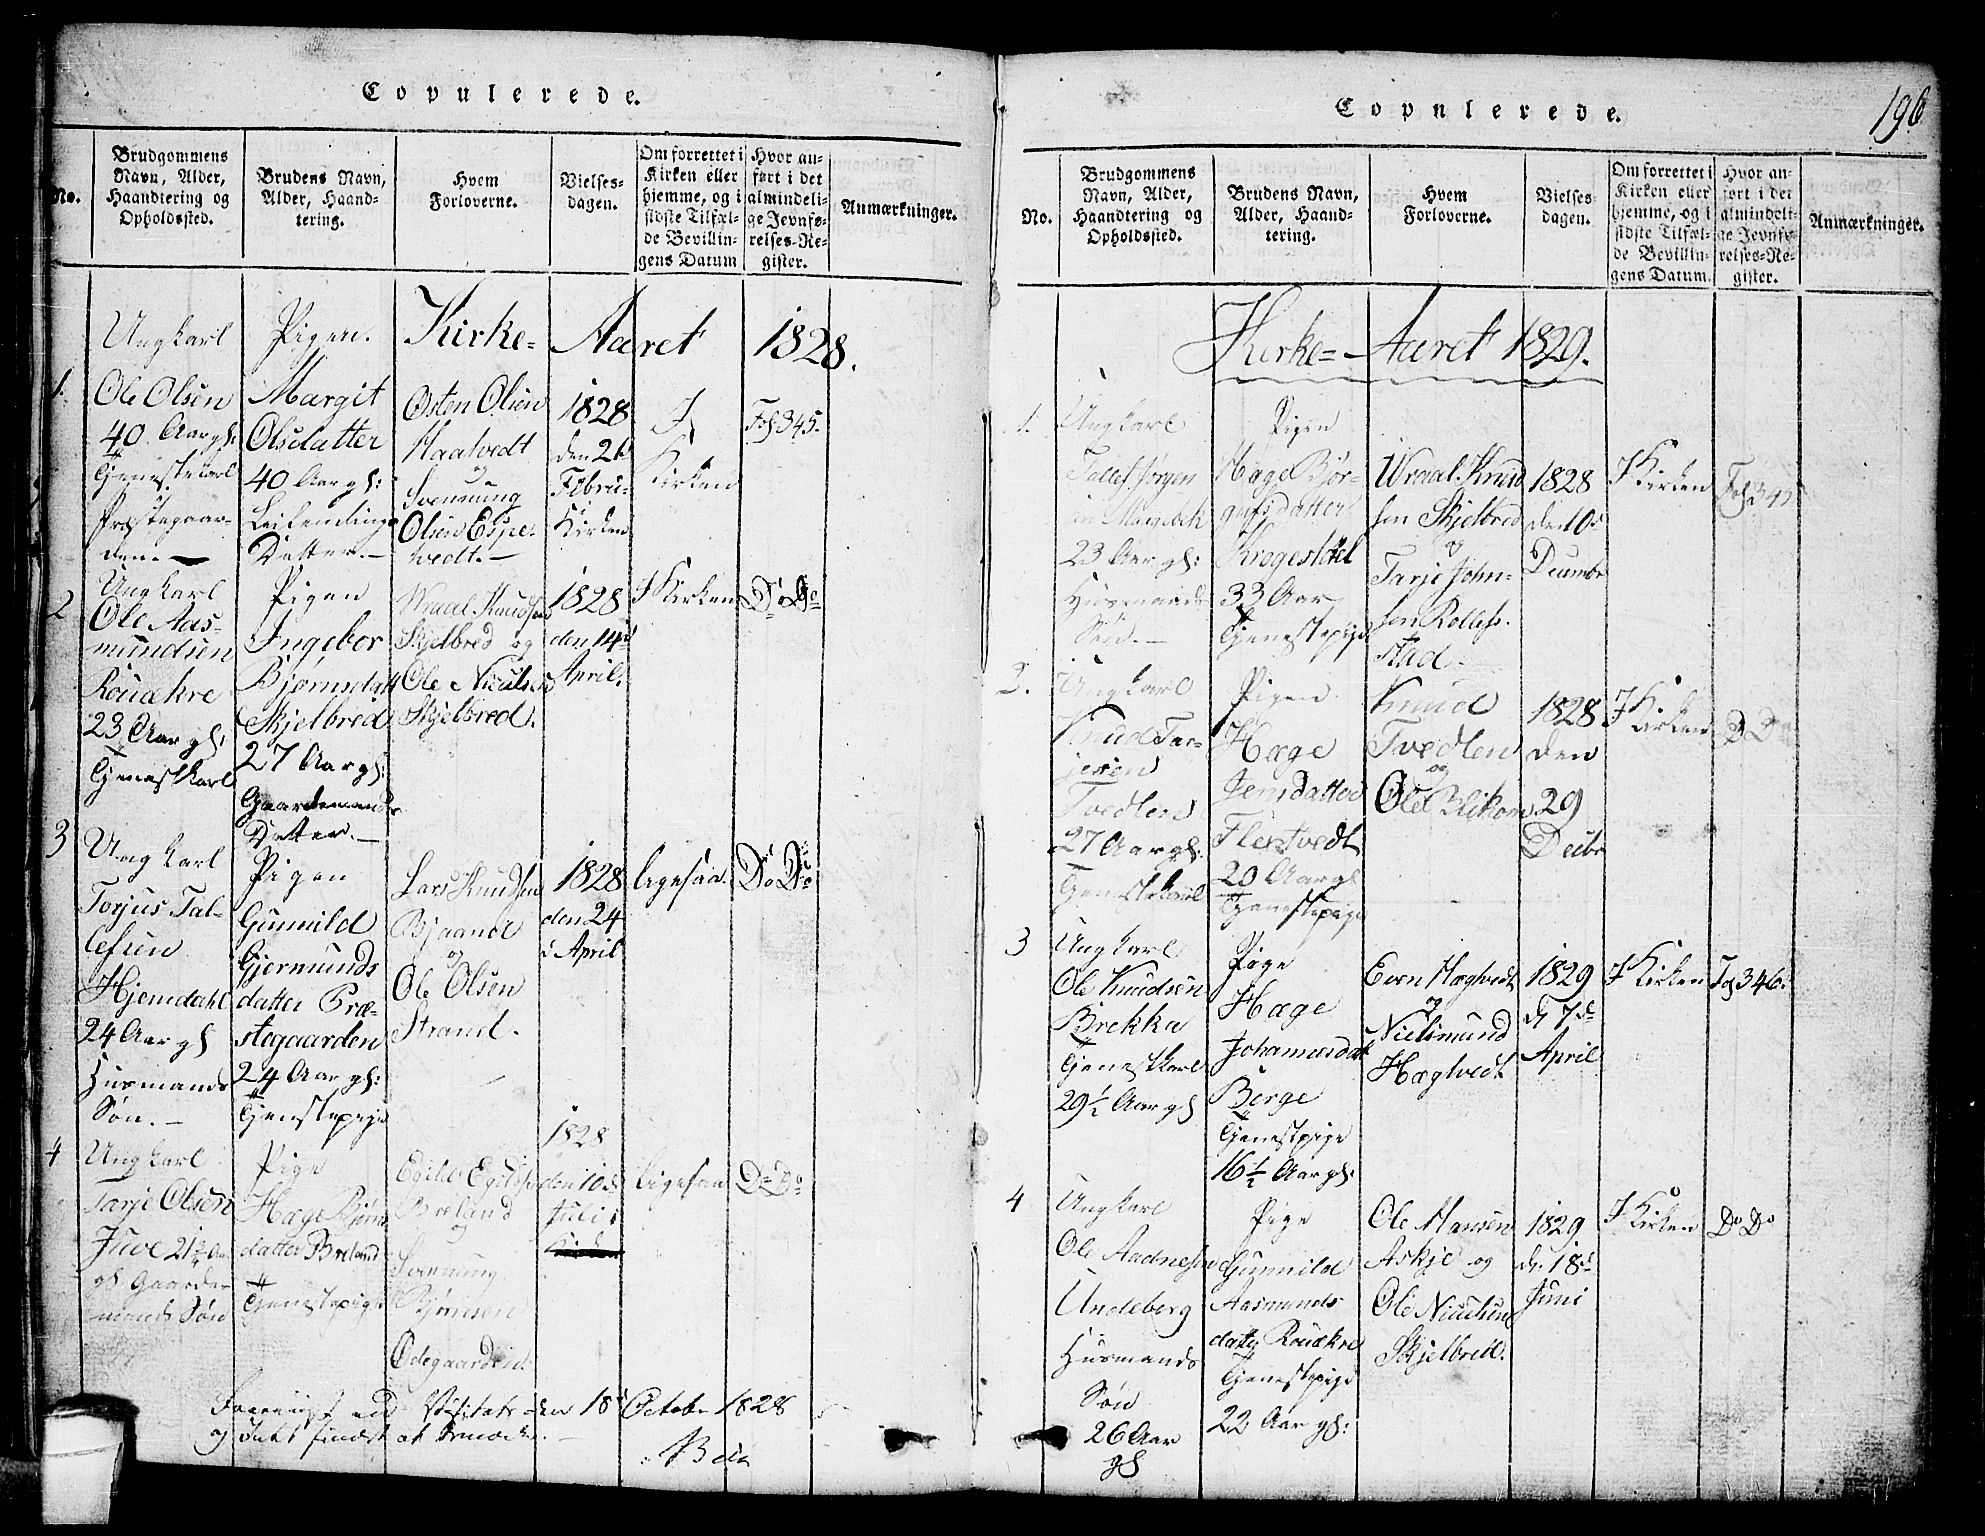 Copulerede.
No.
Brudgommens
Navn, Alder,
Haandtering og
Opholdssted.
Brudens Navn,
Alder, Haand-
tering.
Hvem
Forloverne.
Vielses-
dagen.
Om forrettet i
Kirken eller
hjemme, og i
sidste Tilfæl-
de Bevillin-
gens Datum
Hvor an-
ført i det
almindeli-
ge Jevnfø-
relses-Re-
gister.
Anmærkninger.
Kirke- Aaret 1828.
1.
Ungkarl
Ole Olsen
40 Aar gl:
Tjenestekarl
Præstegaar-
den.
Pigen.
Margit
Olsdatter
40 Aar gl:
Leilendings
Datter.
Østen Olsen
Haatvedt
og
Svennung
Olsen Espe-
vedt.
1828
den 26
Febru-
Kirken
I
Kirken
Fol 345.
2
Ungkarl
Ole Aas-
mundsen
Rouekre
23 Aar gl:
Tjenestkarl
Pigen
Ingebor
Bjørnsdatt
Skjelbred
27 Aar gl:
Gaardemands
Datter.
Wraal Knudsen
Skjelbred og
Ole Nielsen
Skjelbred.
1828
den 14d
April.
I Kirken
Do Do
3
Ungkarl
Torjus Tal-
lefsen
Hjemdahl
24 Aar gl
Husmands
Søn.
Pigen
Gunnild
Gjermunds
datter Præ-
stegaarden
24 Aar gl:
Tjenestepige
Lars Knudsen
Bjaand
og
Ole Olsen
Strand.
1828
den 24
i April
ligesaa.
Do Do
4
Ungkarl
Tarje Olsen
Juve 21 3/4 Aar
gl Gaarde-
mands Søn
Pige
Hæge Bjørns
datter Breland
Tjenestepige
Egild Egilds
Breland
og
Svennung
Bjørnsen
Ødegaarden
1828
den 10d
Juli i
Kirken
ligesaa
Do Do
Visitats den 18 October 1828
og Intet findest at
Copulerede.
196
No.
Brudgommens
Navn, Alder,
Haandtering og
Opholdssted.
Brudens Navn,
Alder, Haand-
tering.
Hvem
Forloverne.
Vielses-
dagen.
Om forrettet i
Kirken eller
hjemme, og i
sidste Tilfæl-
de Bevillin-
gens Datum.
Hvor an-
ført i det
almindeli-
ge Jevnfø-
relses-Re-
gister.
Anmærkninger.
Kirke- Aaret 1829.
1.
Ungkarl
Tallef Jørgen
sen
23 Aar gl:
Husmands
Søn.
Pigen
Hæge Bjør-
gufsdatter
33 Aar
Tjenestepige
Wraal Knud
sen Skjelbred
og
Tarje John-
sen Rolles-
stad.
1828
den 10d
Decembr
I Kirken
Fol 345
2.
Ungkarl
Knud Tar-
jesen
Tvedten
27 Aar gl:
Tjenestekarl
Pigen
Hæge
Jensdatter
Flestvedt
20 Aar gl
Tjenestepige
Knud
Tvedten
og
Ole Blikom
1828
den
29
Decbr
I Kirken
D Do
3
Ungkarl
Ole Knudsen
Brekka
Tjenestkarl
29 1/2 Aar gl
Pige
Hæge
Johannesdat
Berge
Tjenestpige
16 1/2 Aar gl:
Even Hægtvedt
og
Nielsmund
Hægtvedt
1829
d 7de
April
I Kirken
Fol 346.
4
Ungkarl
Ole Aadnesen
Undeberg
Husmands
Søn
26 Aar
gl
Pige
Gunnild
Aasmunds
datter Rouekre
Tjenestepige
22 Aar gl:
Ole Hansen
Askje og
Ole Nielsen
Skjelbred.
1829
d. 18d
Juni
I Kirken
Do Do